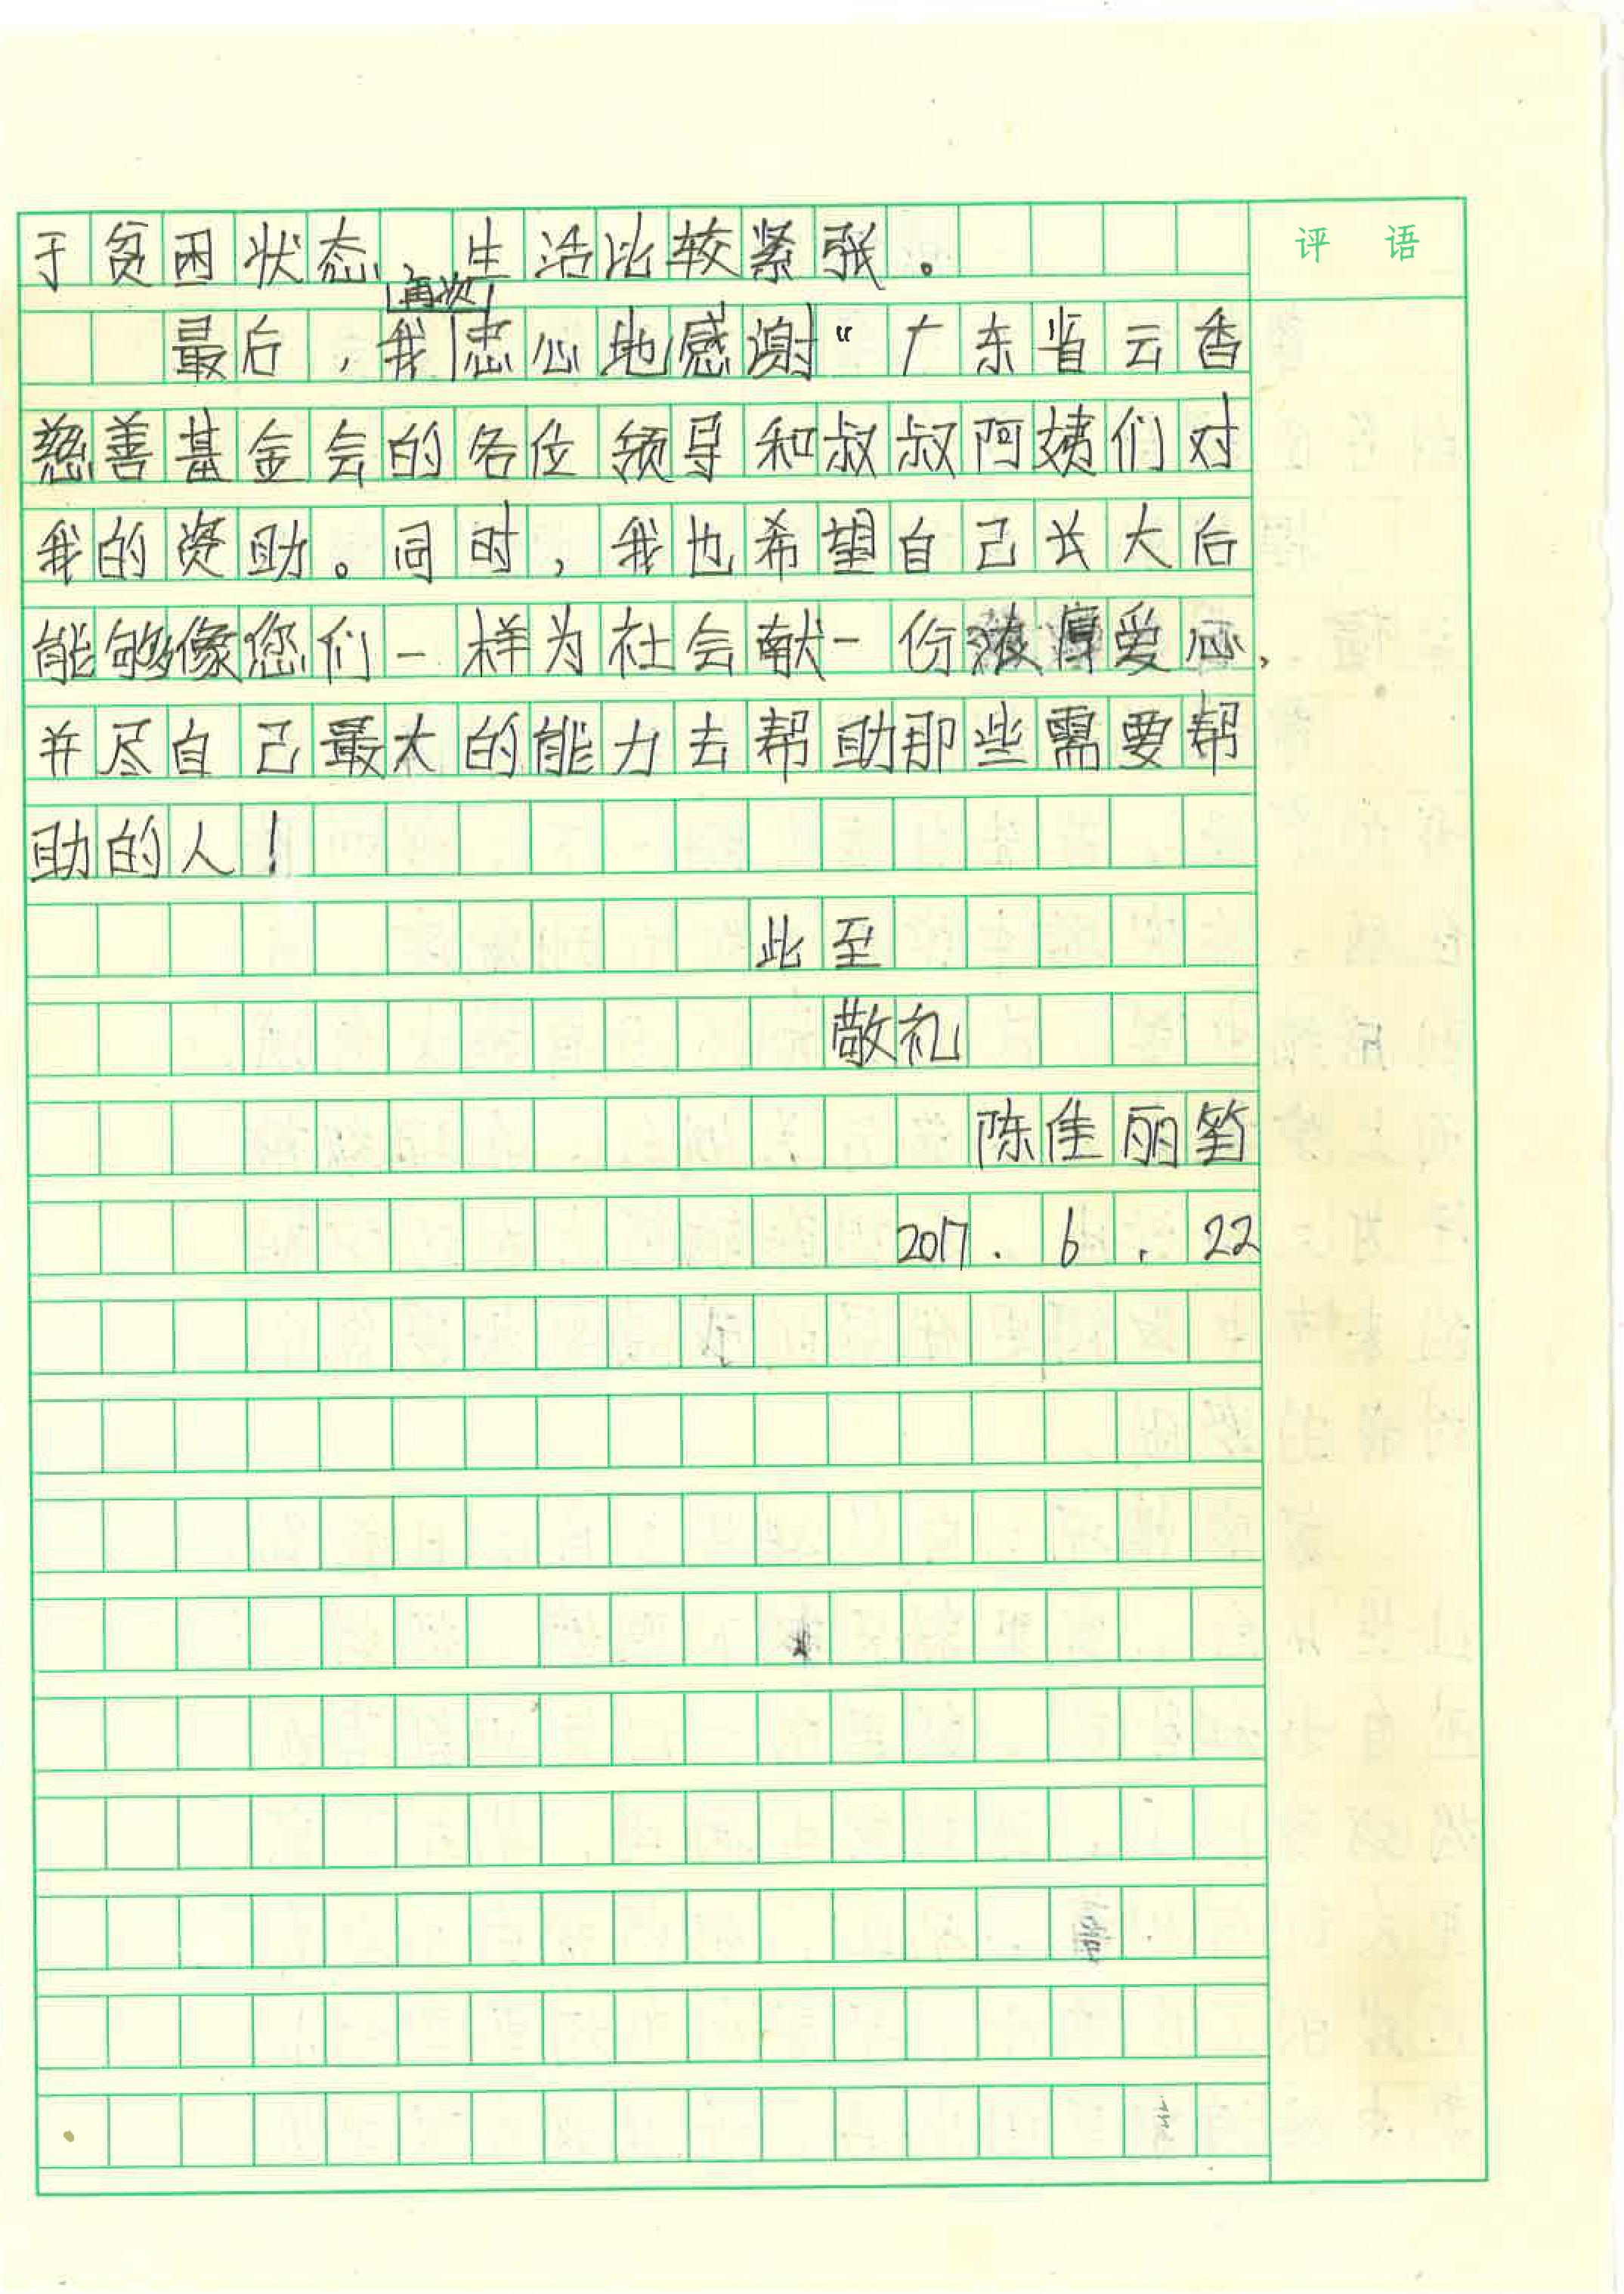 评 语
于贫困状态、生活比较紧张。
再次
最后，我忠心地感谢“广东省云香
慈善基金会的各位领导和叔叔阿姨们对
我的资助。同时，我也希望自己长大后
能够像您们一样为社会献一份浓厚爱心，
并尽自己最大的能力去帮助那些需要帮
助的人！
此至
敬礼
陈佳丽笛
2017.6.22